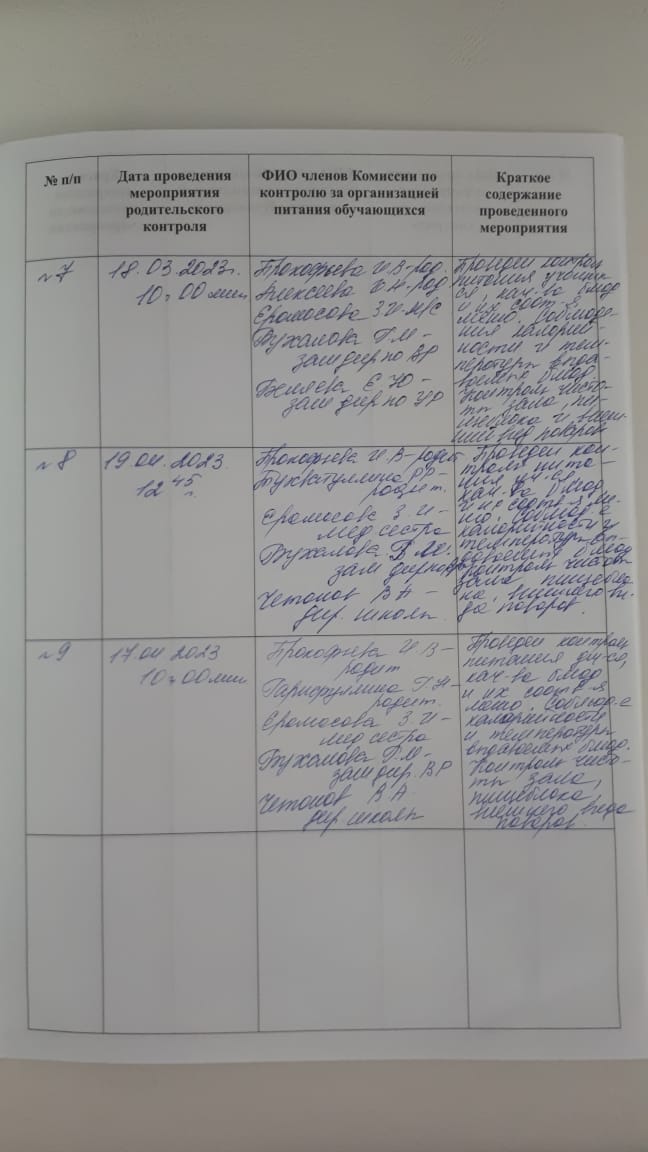 № п/п
Дата проведения
мероприятия
родительского
контроля
ФИО членов Комиссии по
контролю за организацией
питания обучающихся
Краткое
содержание
проведенного
мероприятия
№7
18.03.2023г.
10:00 мин
Прокофьева И В-род.
Алексеева
род
Еромосова З И-м/с
Бухалова Г М-
зам дир по ВР
Беляева Е Ю-
зам дир по УР
Проведен контроль
питания учащих-
ся, кач-ва блюд
и их соот-я
меню. Соблюде-
ния калорий-
ности и тем-
пературы выда-
ваемых блюд
Контроль чисто-
ты зала, пи-
щеблока и внеш-
ний вид поваров
№8
19.04.2023.
12 45 г.
Прокофьева И. В-родит
родит.
Еромосова З И-
мед сестра
Бухалова Г М.
зам дир
Четонов В А-
дир. школы.
Проведен кон-
троль пита-
ния уч-ся
кач-ва блюд
и их соотв-я ме-
ню. Соблюд-е
калорийности и
температуры вы-
даваемых блюд
контроль чистоты
зала, пищебло-
ка, внешнего ви-
да поваров.
№9
17.04 2023
10:00 мин.
Прокофьева И В-
родит
Гарифуллина Г Н-
родит.
Еромосова З И-
мед сестра
Бухалова Г М-
зам дир. ВР
Четонов В А.
дир. школы
Проведен контроль
питания уч-ся,
кач-ва блюд
и их соотв-я
меню. Соблюд-е
калорийности
и температуры
выдаваемых блюд.
Контроль чисто-
ты зала,
пищеблока,
внешнего вида
поваров.